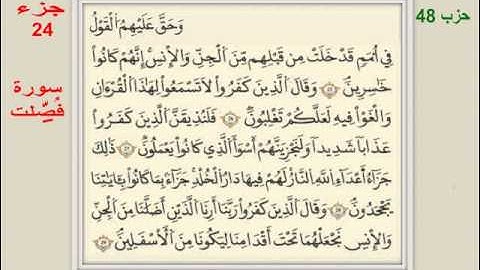 جزء
24
سورة
فُصِّلت
حزب 48
وَحَقَّ عَلَيْهِمُ الْقَوْلُ
فِي أُمَمٍ قَدْ خَلَتْ مِن قَبْلِهِم مِّنَ الْجِنِّ وَالْإِنسِ إِنَّهُمْ كَانُوا
خَاسِرِينَ ۝ وَقَالَ الَّذِينَ كَفَرُوا لَا تَسْمَعُوا لِهَٰذَا الْقُرْآنِ
وَالْغَوْا فِيهِ لَعَلَّكُمْ تَغْلِبُونَ ۝ فَلَنُذِيقَنَّ الَّذِينَ كَفَرُوا
عَذَابًا شَدِيدًا وَلَنَجْزِيَنَّهُمْ أَسْوَأَ الَّذِي كَانُوا يَعْمَلُونَ ۝ ذَٰلِكَ
جَزَاءُ أَعْدَاءِ اللَّهِ النَّارُ لَهُمْ فِيهَا دَارُ الْخُلْدِ جَزَاءً بِمَا كَانُوا بِآيَاتِنَا
يَجْحَدُونَ ۝ وَقَالَ الَّذِينَ كَفَرُوا رَبَّنَا أَرِنَا الَّذَيْنِ أَضَلَّانَا مِنَ الْجِنِّ
وَالْإِنسِ نَجْعَلْهُمَا تَحْتَ أَقْدَامِنَا لِيَكُونَا مِنَ الْأَسْفَلِينَ ۝